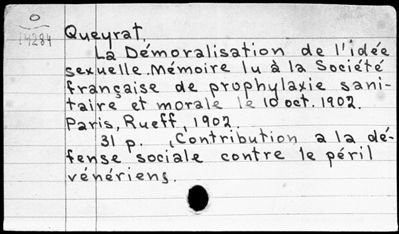 O
14284
Queyrat.
La Démoralisation de l'idée
sexuelle. Mémoire lu à la Société
française de prophylaxie sani-
taire et morale le 10 oct. 1902.
Paris, Rueff, 1902.
31 p. (Contribution a la dé-
fense sociale contre le péril
vénériens.